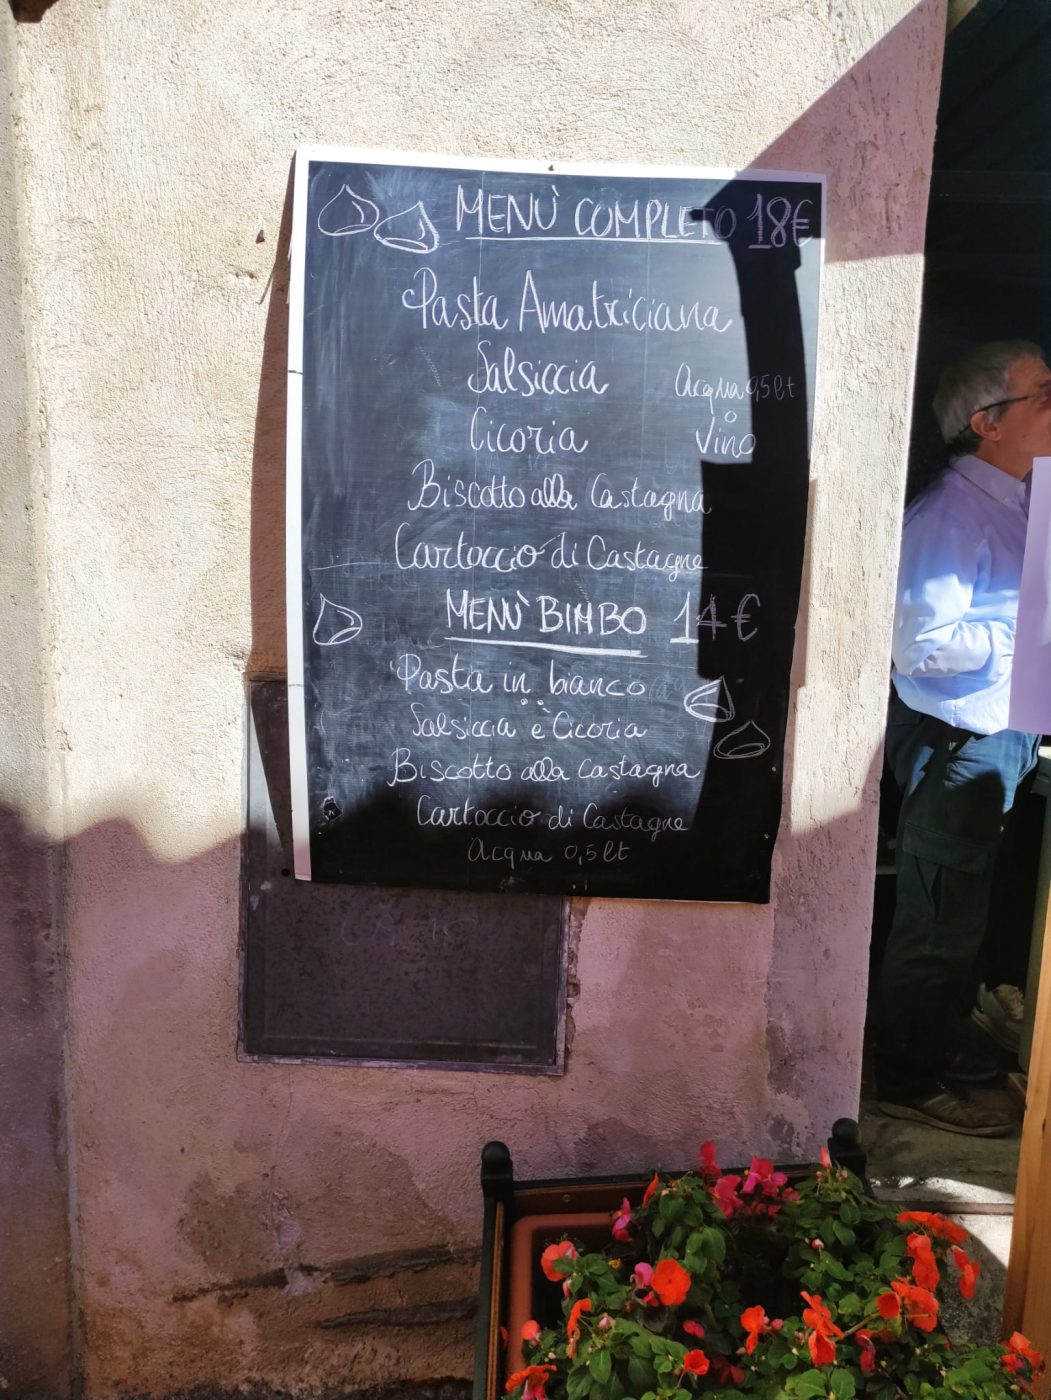 MENÙ COMPLETO 18€
Pasta Amatriciana
Salsiccia
Cicoria
Acqua 0,5lt
o
Vino
Biscotto alla Castagna
Cartoccio di Castagne
MENÙ BIMBO 14€
Pasta in bianco
Salsiccia e Cicoria
Biscotto alla castagna
Cartoccio di Castagne
Acqua 0,5lt